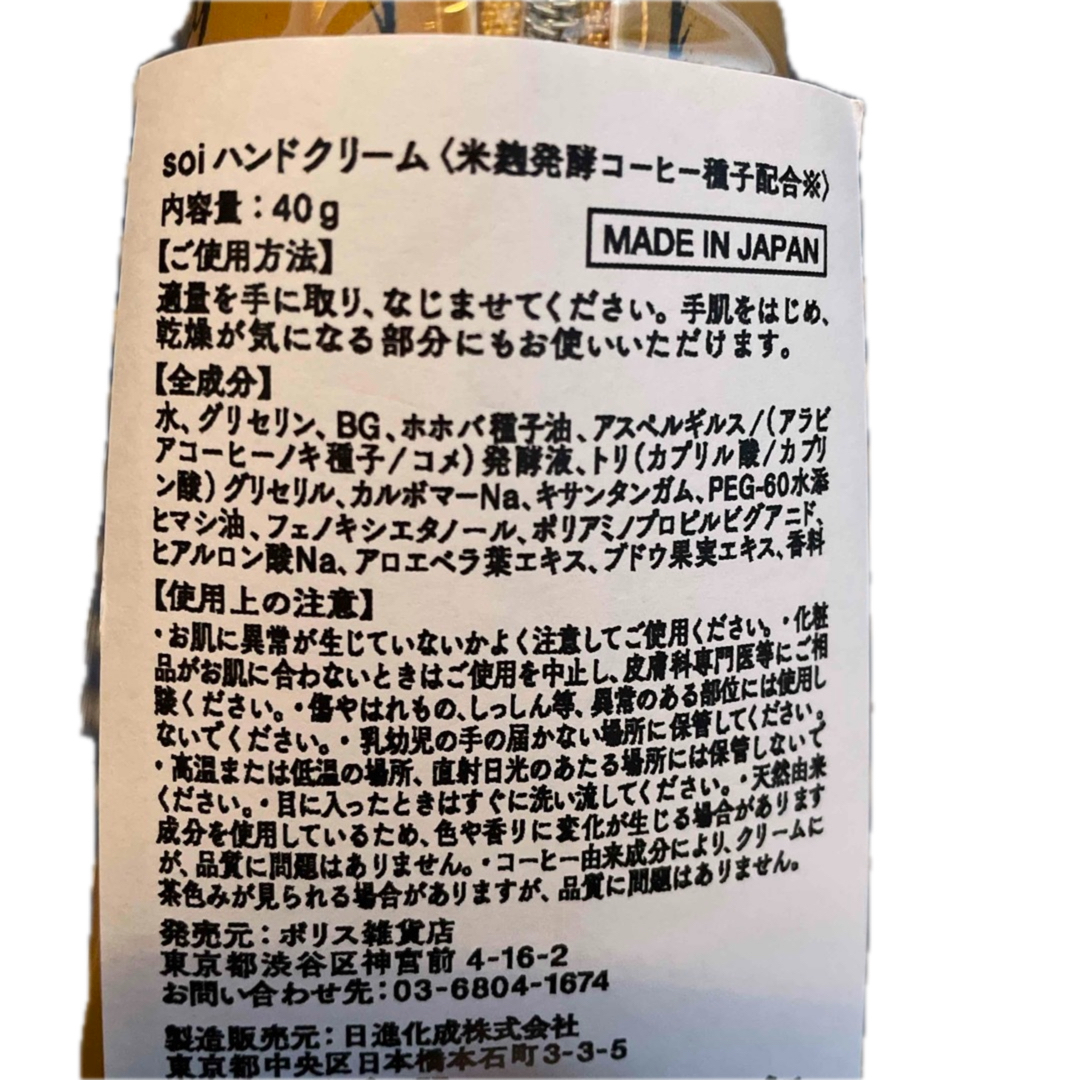 soi ハンドクリーム〈米麹発酵コーヒー種子配合※〉
内容量：40g
MADE IN JAPAN
【ご使用方法】
適量を手に取り、なじませてください。手肌をはじめ、
乾燥が気になる部分にもお使いいただけます。
【全成分】
水、グリセリン、BG、ホホバ種子油、アスペルギルス/(アラビ
アコーヒーノキ種子/コメ)発酵液、トリ(カプリル酸/カプリ
ン酸)グリセリル、カルボマーNa、キサンタンガム、PEG-60水添
ヒマシ油、フェノキシエタノール、ポリアミノプロピルビグアニド、
ヒアルロン酸Na、アロエベラ葉エキス、ブドウ果実エキス、香料
【使用上の注意】
・お肌に異常が生じていないかよく注意してご使用ください。・化粧
品がお肌に合わないときはご使用を中止し、皮膚科専門医等にご相
談ください。・傷やはれもの、しっしん等、異常のある部位には使用し
ないでください。・乳幼児の手の届かない場所に保管してください。
・高温または低温の場所、直射日光のあたる場所には保管しないで
ください。・目に入ったときはすぐに洗い流してください。・天然由来
成分を使用しているため、色や香りに変化が生じる場合があります
が、品質に問題はありません。・コーヒー由来成分により、クリームに
茶色みが見られる場合がありますが、品質に問題はありません。
発売元：ボリス雑貨店
東京都渋谷区神宮前 4-16-2
お問い合わせ先：03-6804-1674
製造販売元：日進化成株式会社
東京都中央区日本橋本石町3-3-5